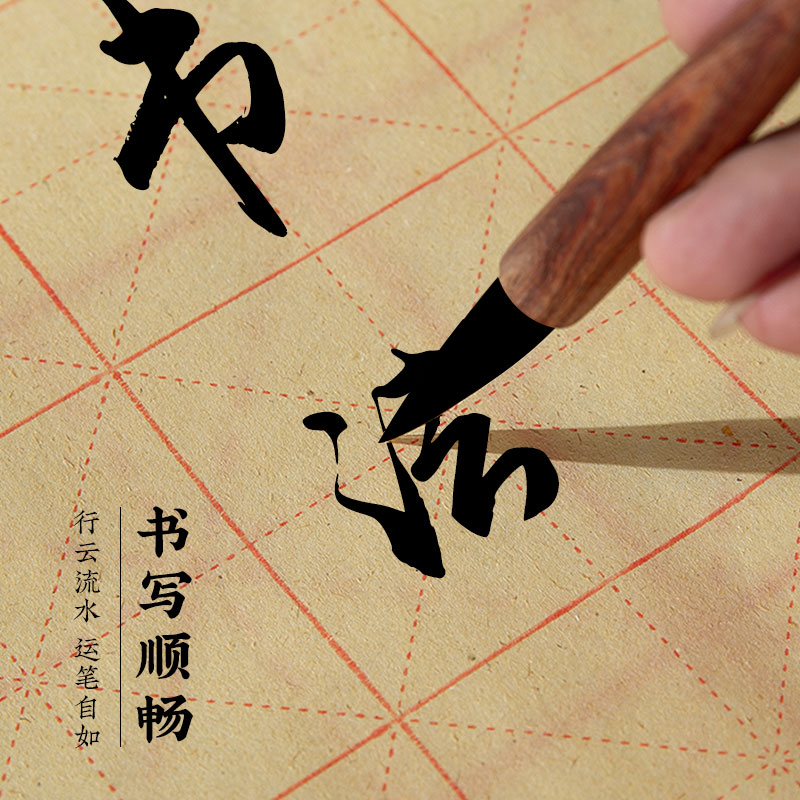 书写顺畅
行云流水 运笔自如